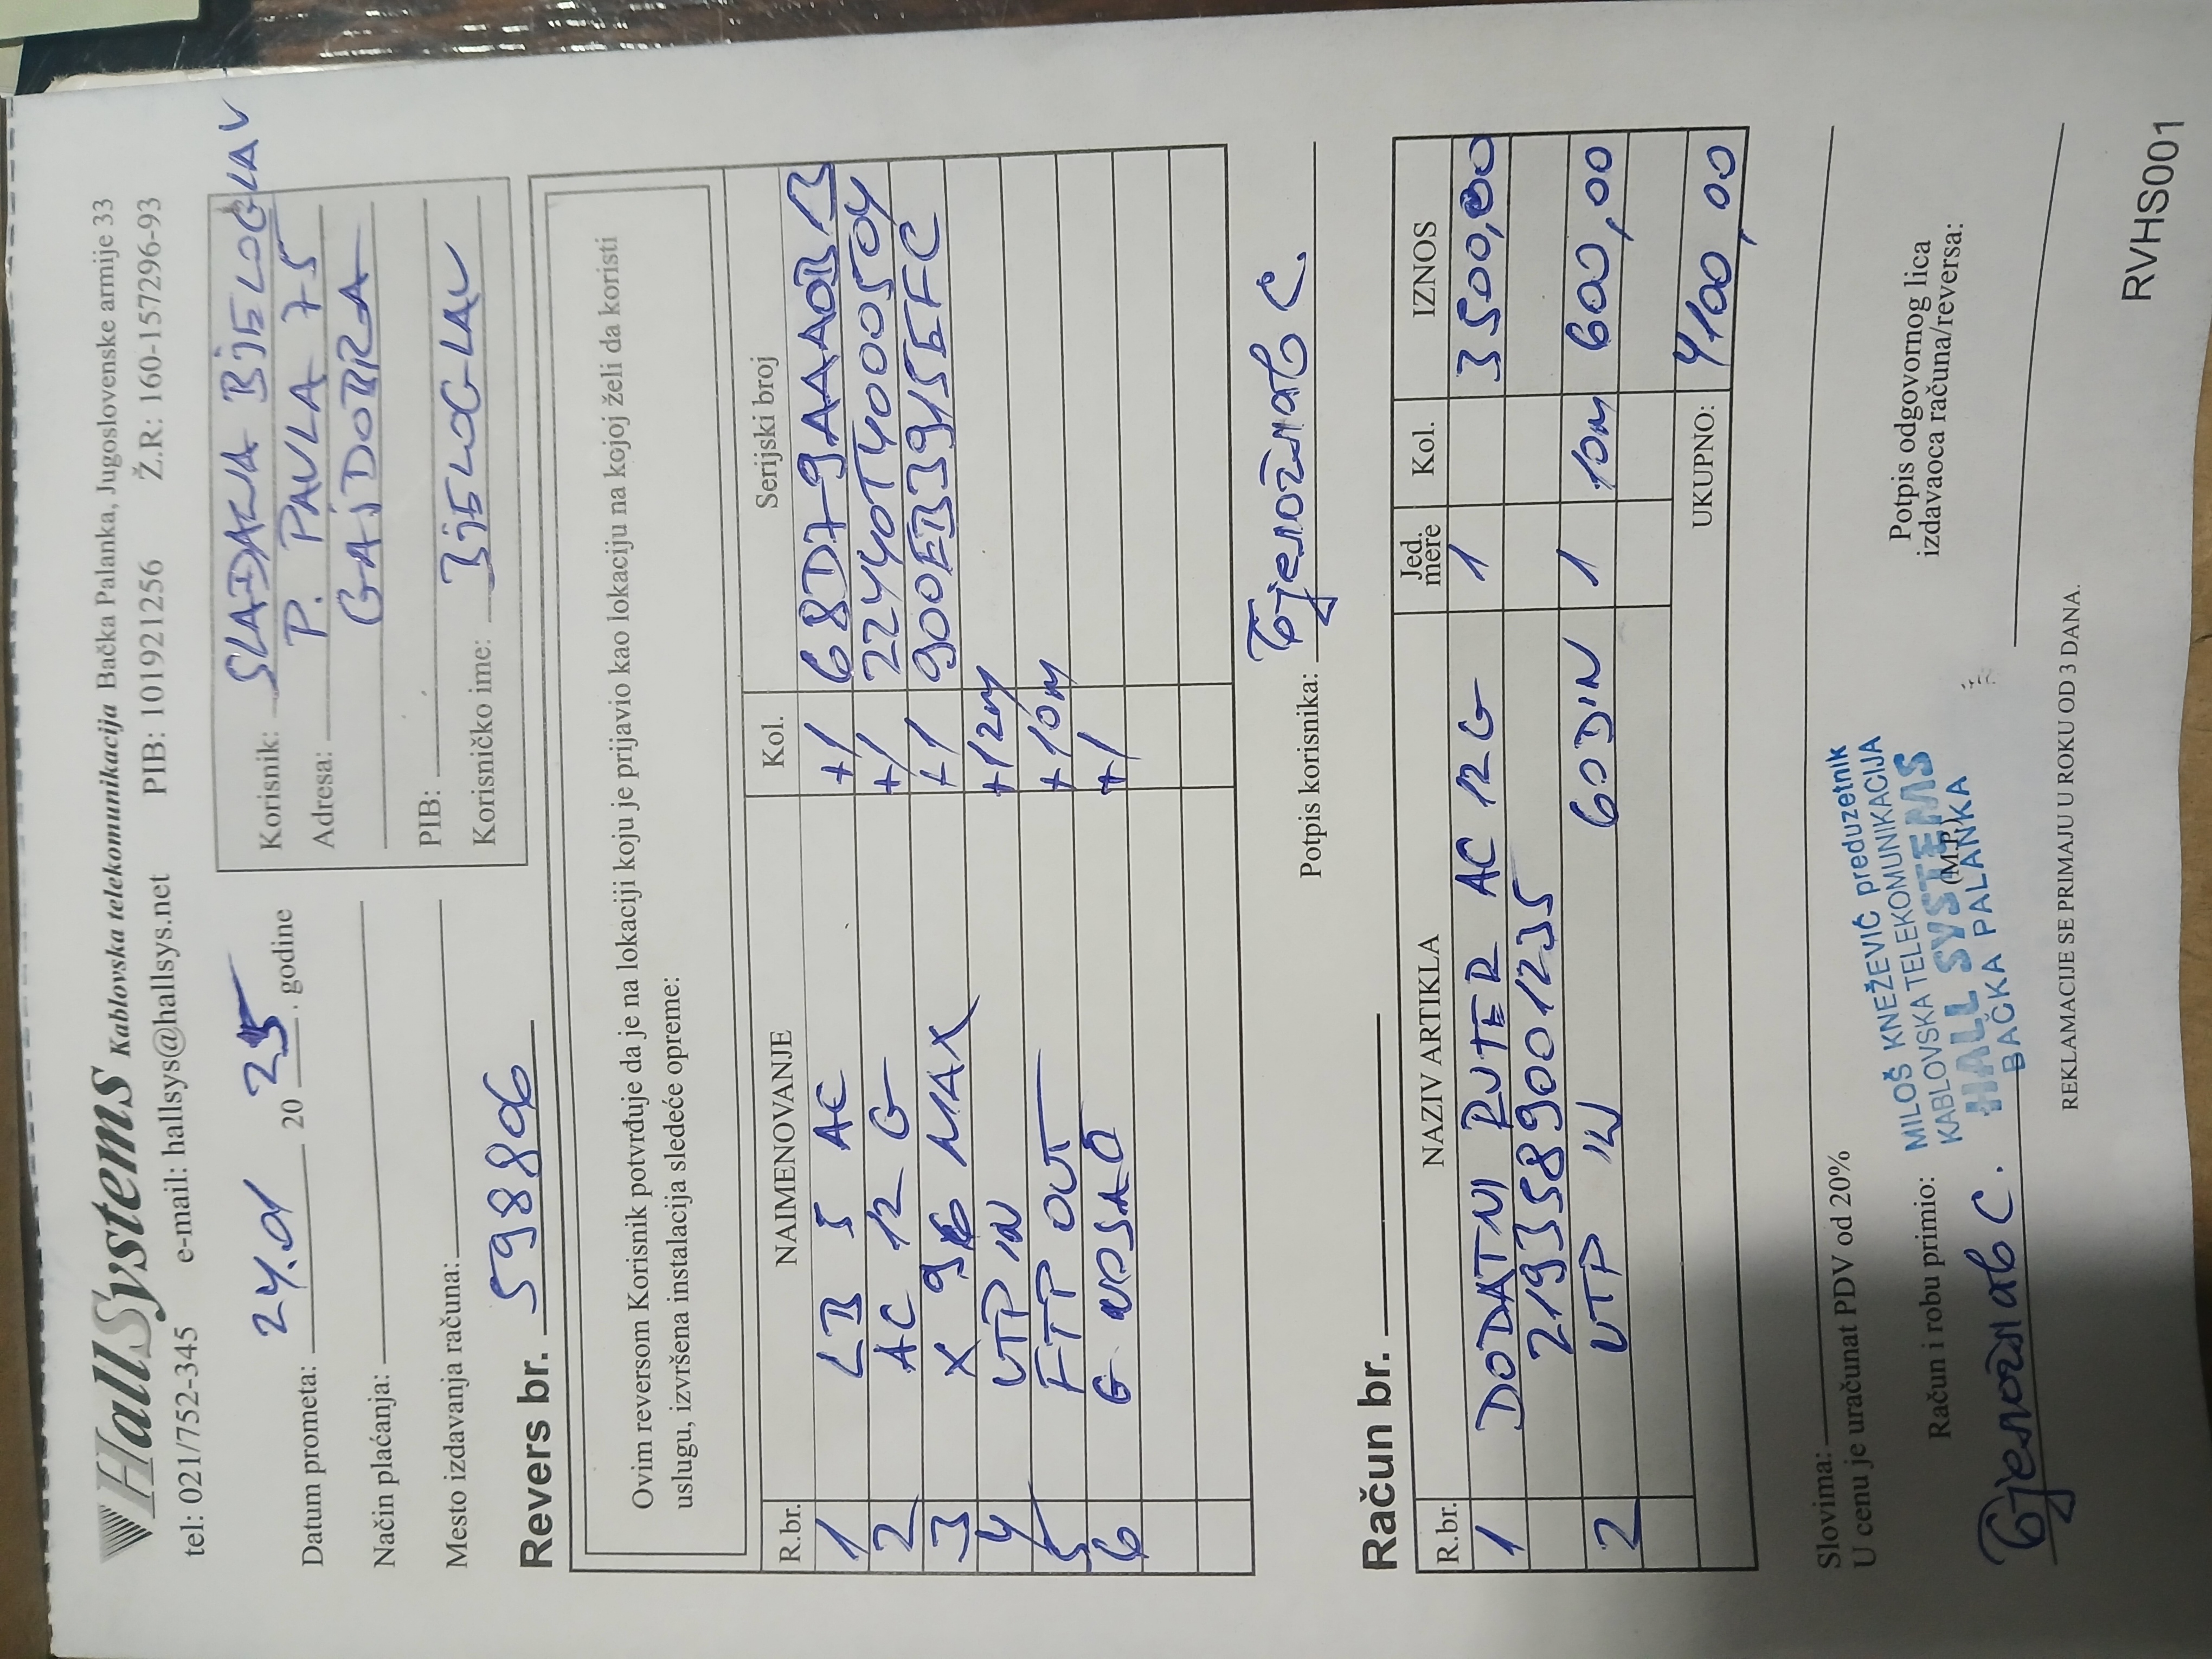 HallSystems Kablovska telekomunikacija Bačka Palanka, Jugoslovenske armije 33
tel: 021/752-345 e-mail: hallsys@hallsys.net PIB: 101921256 Ž.R: 160-1577296-93
Datum prometa: 24.01 2025. godine
Način plaćanja:
Mesto izdavanja računa:
Korisnik: SLAĐANA BJELOGLAV
Adresa: P. PAVLA 75
GAJDOBRA
PIB:
Korisničko ime: BJELOGLAV
Revers br. 598806
Ovim reversom Korisnik potvrđuje da je na lokaciji koju je prijavio kao lokaciju na kojoj želi da koristi
uslugu, izvršena instalacija sledeće opreme:
R.br. NAIMENOVANJE Kol. Serijski broj
1 LB 5 AC +1
2 AC 12 G +1 22440T4000504
3 X MAX +1 900EB3915EFC
4 UTP IN +12m
5 FTP OUT +10m
6 G NOSAČ +1
Potpis korisnika: Бјелоглав С.
Račun br.
R.br. NAZIV ARTIKLA Jed. mere Kol. IZNOS
1 DODATNI RUTER AC 12 G 1 3500,00
2193589001235
2 UTP IN 60 DIN 1 10m 600,00
UKUPNO: 4100,00
Slovima:
U cenu je uračunat PDV od 20%
Račun i robu primio:
Бјелоглав С.
MILOŠ KNEŽEVIĆ preduzetnik
KABLOVSKA TELEKOMUNIKACIJA
HALL SYSTEMS
(M.P.)
BAČKA PALANKA
Potpis odgovornog lica
izdavaoca računa/reversa:
REKLAMACIJE SE PRIMAJU U ROKU OD 3 DANA.
RVHS001